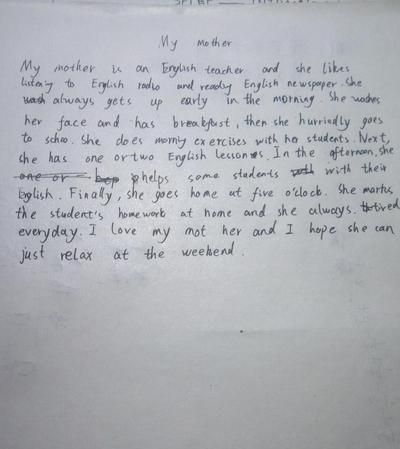 My mother
My mother is an English teacher and she likes
listening to English radio and reading English newspaper. She
always gets up early in the morning. She washes
her face and has breakfast, then she hurriedly goes
to school. She does morning exercises with her students. Next,
she has one or two English lessons. In the afternoon, she
one or helps some students with their
English. Finally, she goes home at five o'clock. She marks
the student's homework at home and she always. tired
everyday. I love my mot her and I hope she can
just relax at the weekend.